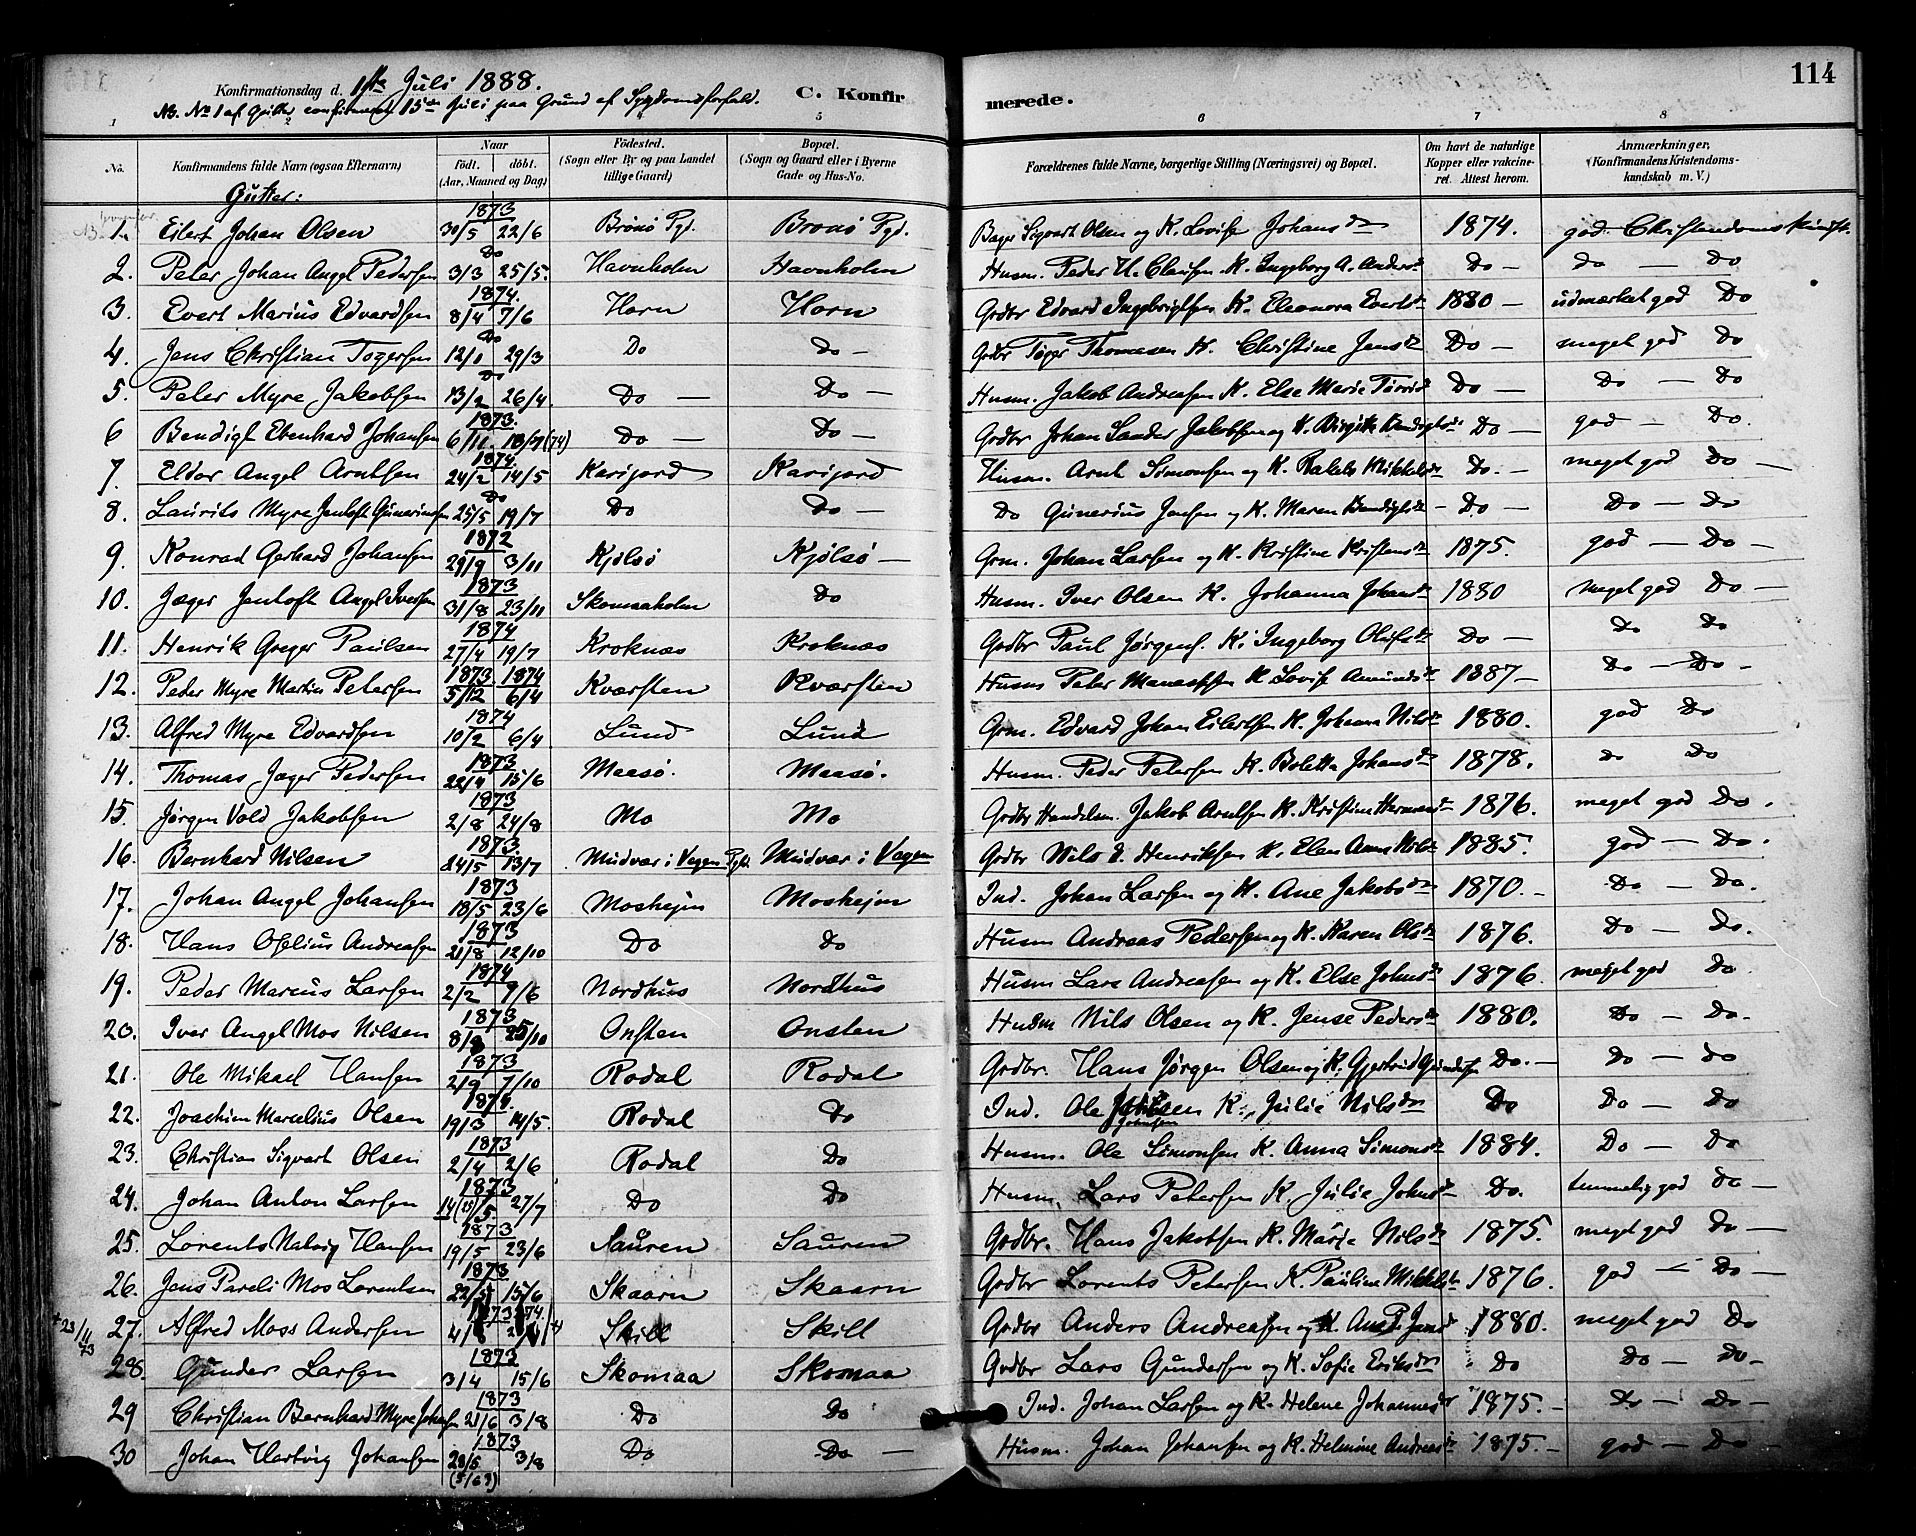 114
Konfirmationsdag d. 1ste Juli 1888. C. Konfirmerede.
NB. No 1 af Gutter confirmeret 15de Juli paa Grund af Sygdomsforfald.
1 2 3 5 6 7 8
No. Konfirmandens fulde Navn (ogsaa Efternavn) Naar født. døbt. (Aar, Maaned og Dag) Fødested. (Sogn eller By og paa Landet tillige Gaard) Bopæl. (Sogn og Gaard eller i Byerne Gade og Hus-No. Forældrenes fulde Navne, borgerlige Stilling (Næringsvei) og Bopæl. Om havt de naturlige Kopper eller vakcineret. Attest herom. Anmærkninger, (Konfirmandens Kristendomskundskab m. V.)
Gutter:
1. Eilert Johan Olsen 1873 30/5 22/6 Brønø Pgd. Brønø Pgd. Bager Sigvart Olsen og K. Lovise Johansdr 1874. god Christendomskundsk.
2. Peter Johan Angel Pedersen Do 3/3 25/5. Havnholm Havnholm Husm. Peder H. Clausen K. Ingeborg A. Andersdr Do — Do — Do
3. Evert Marius Edvardsen 1874. 8/4 7/6 Horn Horn Grdbr Edvard Ingebrigtsen K. Eleonora Evertsdr 1880 — udmærket god Do
4. Jens Christian Togersen Do 12/1 29/3 Do Do — Grdbr Tøger Thomesen K. Christine Jensdr Do — meget god Do
5. Peter Myre Jakobsen Do 13/2 26/4. Do — Do — Husm. Jakob Andreasen K. Else Marie Do — Do — Do
6 Bendigt Ebenhard Johansen 1873. 6/11 18/7 (74) Do — Do — Grdbr Johan Sander Jakobsen og K. Birgitte Bendigtsdr Do — god — Do.
7. Eldor Angel Arntsen 1874 24/2 14/5 Karijord Karijord Husm. Arnt Simonsen og K. Mikkelsdr Do. — meget god Do —
8. Laurits Myre Jentoft Gunerinsen Do 25/5 19/7 Do Do — Do Gunerius Jensen og K. Maren Bendigtsdr — Do — Do — Do
9. Konrad Gerhard Johansen 1872 29/9 3/11 Kjølsø Kjølsø — Grm. Johan Larsen og K. Kristine Kristensdr 1875. god — Do —
10. Jæger Jentoft Angel Iversen 1873 31/8 23/11 Skomaaholm Do Husm. Iver Olsen K. Johanna Johansdr 1880 meget god Do —
11. Henrik Greger Paulsen 1874 27/4 19/7 Kroknæs Kroknæs Grdbr Paul Jørgens. K. Ingeborg Olufsdr Do — Do Do
12. Peder Myre Martin Petersen 1873 1874 5/12 6/4 Kværsten Kværsten Husm Peter Manassesen K Lovise Amundsdr 1887 — Do — Do —
13. Alfred Myre Edvardsen 1874 10/2 6/4 Lund Lund Grm. Edvard Johan Eilertsen K. Johanna Nilsdr 1880. god Do
14. Thomas Jæger Pedersen 1873 22/4 15/6 Maasø. Maasø. Husm. Peder Petersen K. Boletta Johansdr 1878. Do Do
15. Jørgen Vold Jakobsen 1873 2/8 24/8 Mo Mo Grdbr Handelsm. Jakob Arntsen K. Kristine Hermansdr 1876. meget god Do.
16. Bernhard Nilsen 1873. 24/5 13/7 Mudvær i Vegen Pgd. Mudvær i Vegen Grdbr Nils D. Henriksen K. Elen Anna Nilsdr 1885. god — Do.
17. Johan Angel Johansen 1873 18/5 23/6 Moshejm Moshejm Ind. Johan Larsen og K. Ane Jakobsdr 1870. — Do — Do.
18. Hans Ofelius Andreasen 1873 21/8 12/10 Do Do Husm Andreas Pedersen og K. Karen Olsdr 1876. Do — Do.
19. Peder Marcus Larsen 1874 2/2 9/6 Nordhus Nordhus Husm Lars Andreasen og K. Else Johnsdr 1876. meget god Do.
20. Iver Angel Mos Nilsen 1873 8/8 25/10 Onsten Onsten Husm Nils Olsen og K. Jense Pedersdr 1880. Do — Do.
21. Ole Mikael Hansen 1873 2/9 7/10 Rodal Rodal Grdbr. Hans Jørgen Olsen og K. Gjertrud Do. — Do — Do
22. Joachim Marcelius Olsen 1874. 19/3 14/5. Rodal Do Ind. Ole Johnsen K. Julie Nilsdr Do Do — Do
23. Christian Sigvart Olsen 1873 2/4 2/6 Rodal Do Husm. Ole Simonsen K. Anna Simonsdr 1884. Do — Do
24. Johan Anton Larsen 1873 14(15)/5. 27/7 Do Do Husm. Lars Petersen K. Julie Johnsdr Do. temmelig god Do —
25. Lorents Natvig Hansen 1873 19/5 23/6 Sauren Sauren Grdbr. Hans Jakobsen K. Nilsdr 1875. meget god Do —
26. Jens Pareli Mos Lorentsen 1873 22/5 15/6 Skaarn Skaarn Grdbr Lorents Petersen K. Pauline Mikkelsdr 1876. god — Do —
+23/11 73 27. Alfred Moss Andersen 1873 74. 4/ Skill Skill Grdbr Anders Andreasen og K. 1880. meget god Do
28. Gunder Larsen 1873 3/4 15/6 Skomaa Skomaa Grdbr Lars Gundersen og K. Sofie Eriksdr Do Do — Do —
29 Christian Bernhard Myre Johansen 1873 21/6 3/8 Do Do Ind. Johan Larsen og K. Helene Johannesdr 1875. — Do — Do —
30 Johan Hartvig Johansen 1873 28/5 (5/63) 3/8 Do Do — Husm. Johan Johansen og K. Helmine Andreasdr 1875. — god — Do —